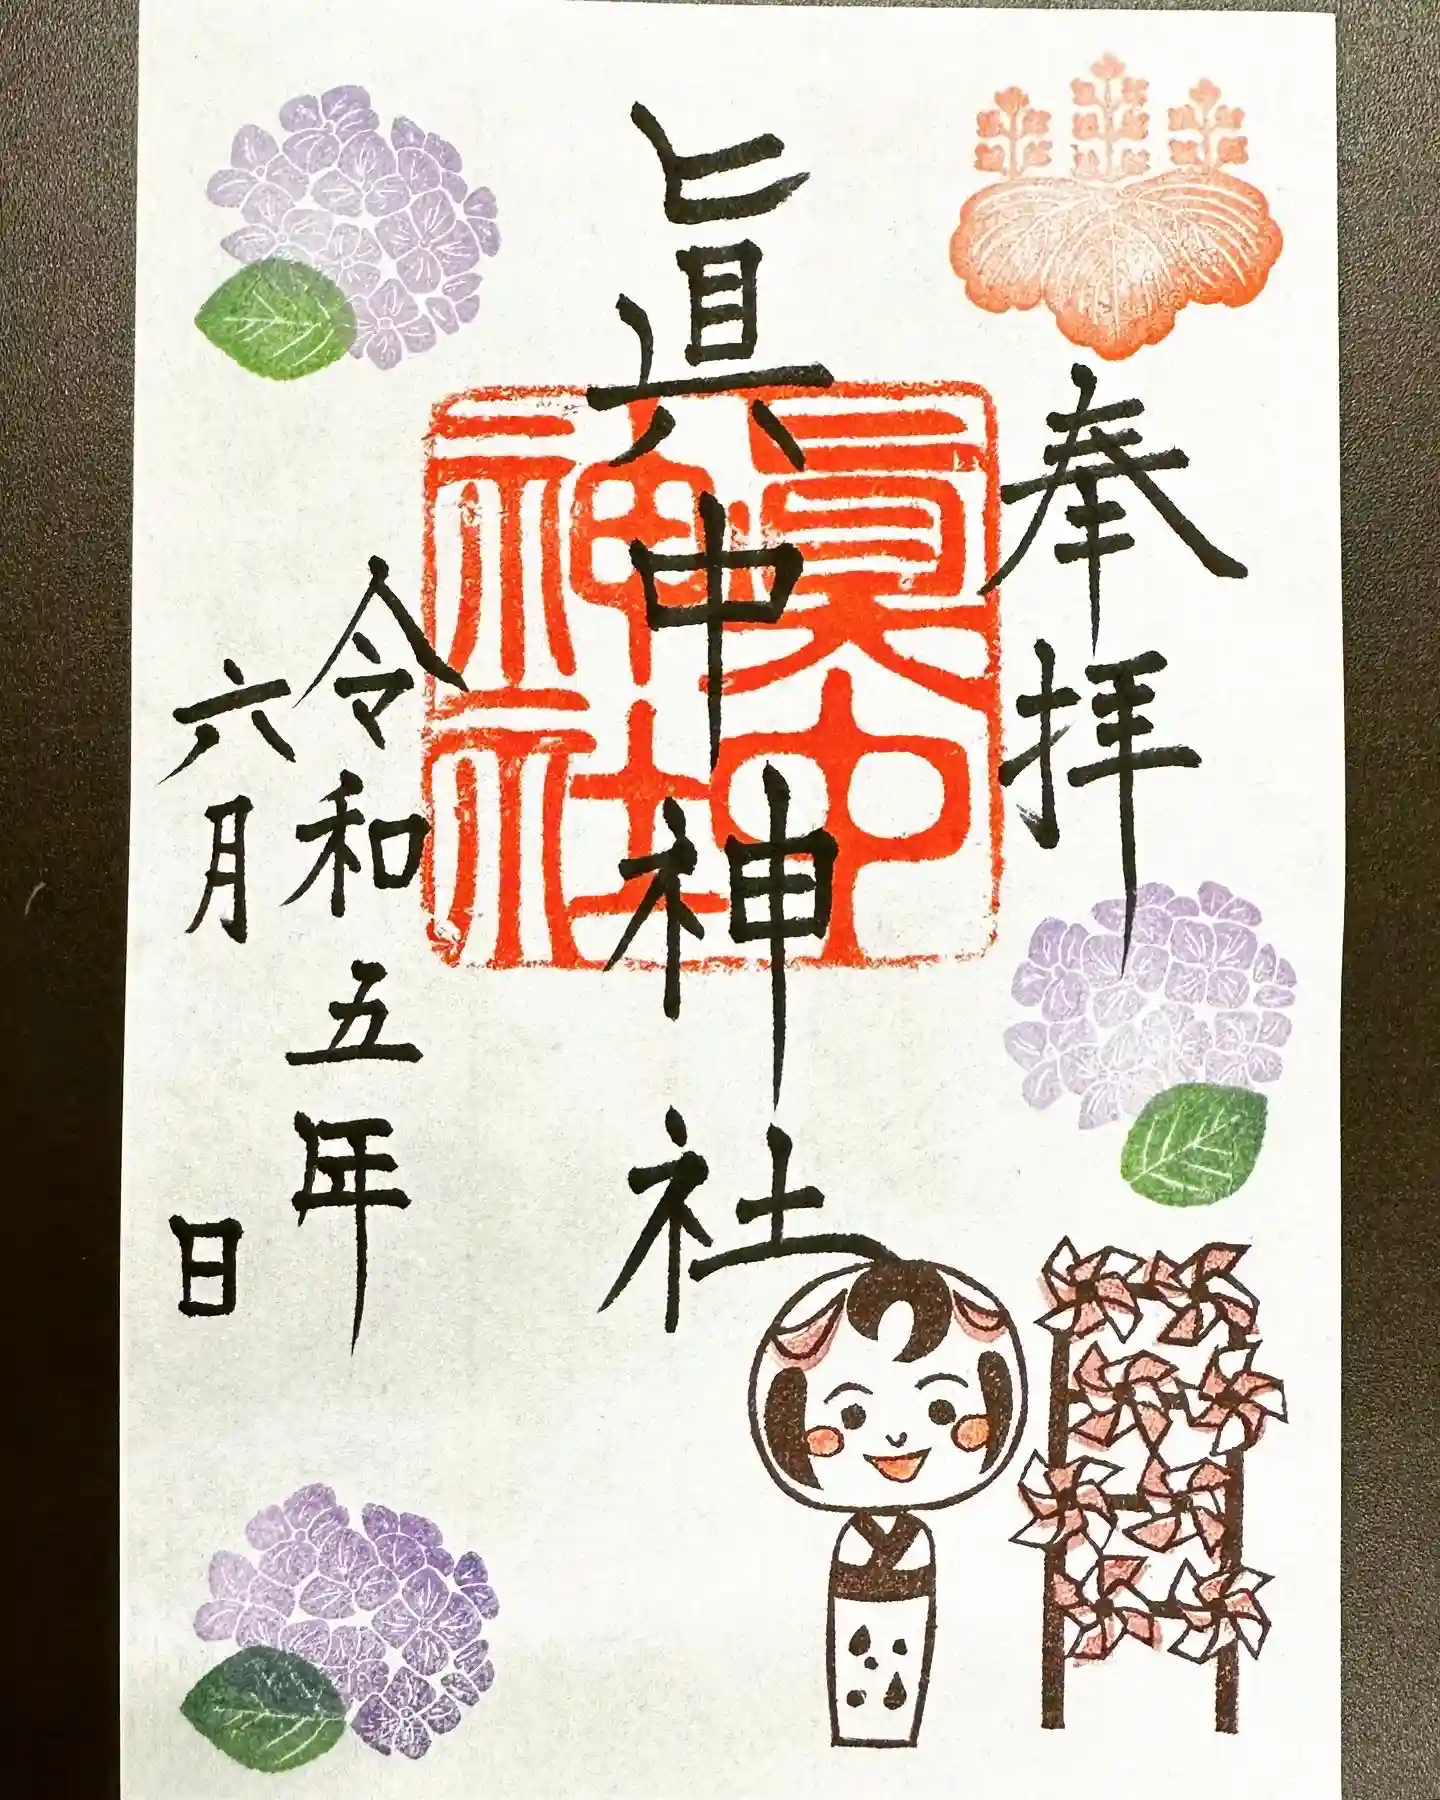 奉拝
眞中神社
眞中神社
令和五年
六月 日